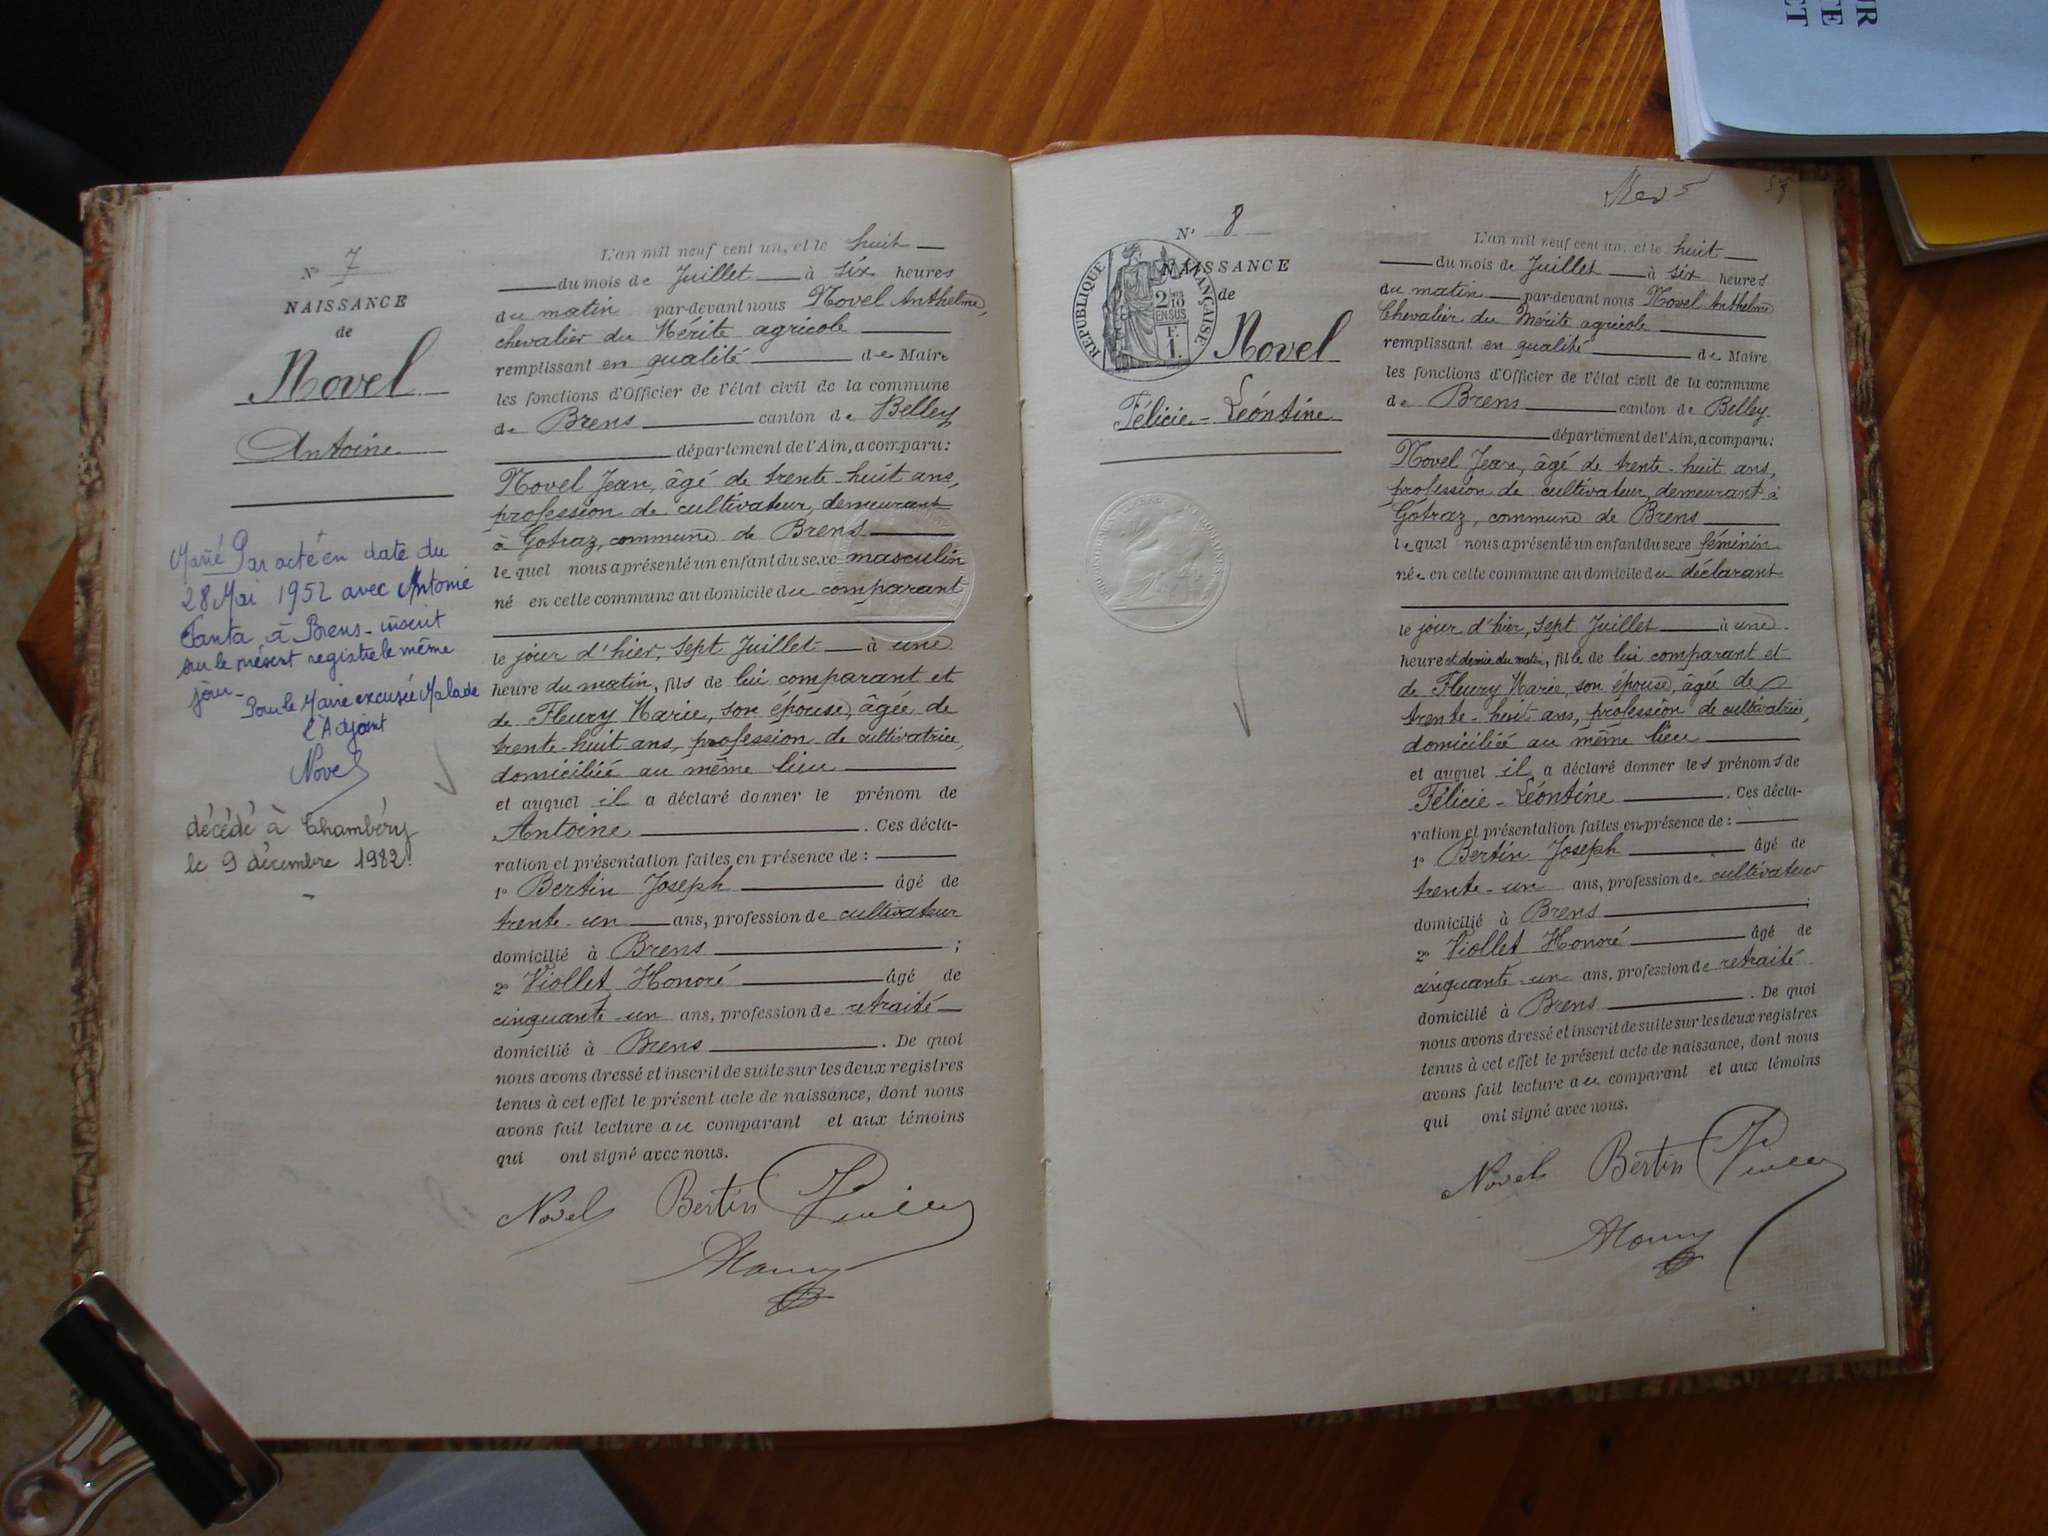 N° 7
NAISSANCE
de
Novel
Antoine
Marié Par acte en date du
28 Mai 1952 avec Antonie
Santa à Brens - inscrit
sur le présent registre le même
jour -
Pour le Maire excusée Malade
L'Adjoint
Novel
décédé à Chambéry
le 9 décembre 1982.
L'an mil neuf cent un, et le huit
du mois de Juillet à six heures
du matin par-devant nous Novel Anthelme,
chevalier du Mérite agricole
remplissant en qualité de Maire
les fonctions d'Officier de l'état civil de la commune
de Brens canton de Belley
département de l'Ain, a comparu :
Novel Jean, âgé de trente-huit ans,
profession de cultivateur, demeurant
à Gotraz, commune de Brens
lequel nous a présenté un enfant du sexe masculin
né en cette commune au domicile du comparant
le jour d'hier, sept Juillet à une
heure du matin, fils de lui comparant et
de Fleury Marie, son épouse, âgée de
trente-huit ans, profession de cultivatrice,
domiciliée au même lieu
et auquel il a déclaré donner le prénom de
Antoine . Ces décla-
ration et présentation faites en présence de :
1° Bertin Joseph âgé de
trente-un ans, profession de cultivateur
domicilié à Brens ;
2° Viollet Honoré âgé de
cinquante-un ans, profession de retraité
domicilié à Brens . De quoi
nous avons dressé et inscrit de suite sur les deux registres
tenus à cet effet le présent acte de naissance, dont nous
avons fait lecture au comparant et aux témoins
qui ont signé avec nous.
Novel Bertin
N° 8
NAISSANCE
de
RÉPUBLIQUE FRANÇAISE
2/10 EN SUS
F. 1.
Novel
Félicie-Léontine
L'an mil neuf cent un, et le huit
du mois de Juillet à six heures
du matin par-devant nous Novel Anthelme
Chevalier du Mérite agricole
remplissant en qualité de Maire
les fonctions d'Officier de l'état civil de la commune
de Brens canton de Belley
département de l'Ain, a comparu :
Novel Jean, âgé de trente-huit ans,
profession de cultivateur, demeurant à
Gotraz, commune de Brens
lequel nous a présenté un enfant du sexe féminin
née en cette commune au domicile du déclarant
le jour d'hier, sept Juillet à une
heure et demie du matin, fille de lui comparant et
de Fleury Marie, son épouse, âgée de
trente-huit ans, profession de cultivatrice,
domiciliée au même lieu
et auquel il a déclaré donner les prénoms de
Félicie-Léontine . Ces décla-
ration et présentation faites en présence de :
1° Bertin Joseph âgé de
trente-un ans, profession de cultivateur
domicilié à Brens ;
2° Viollet Honoré âgé de
cinquante-un ans, profession de retraité
domicilié à Brens . De quoi
nous avons dressé et inscrit de suite sur les deux registres
tenus à cet effet le présent acte de naissance, dont nous
avons fait lecture au comparant et aux témoins
qui ont signé avec nous.
Novel Bertin